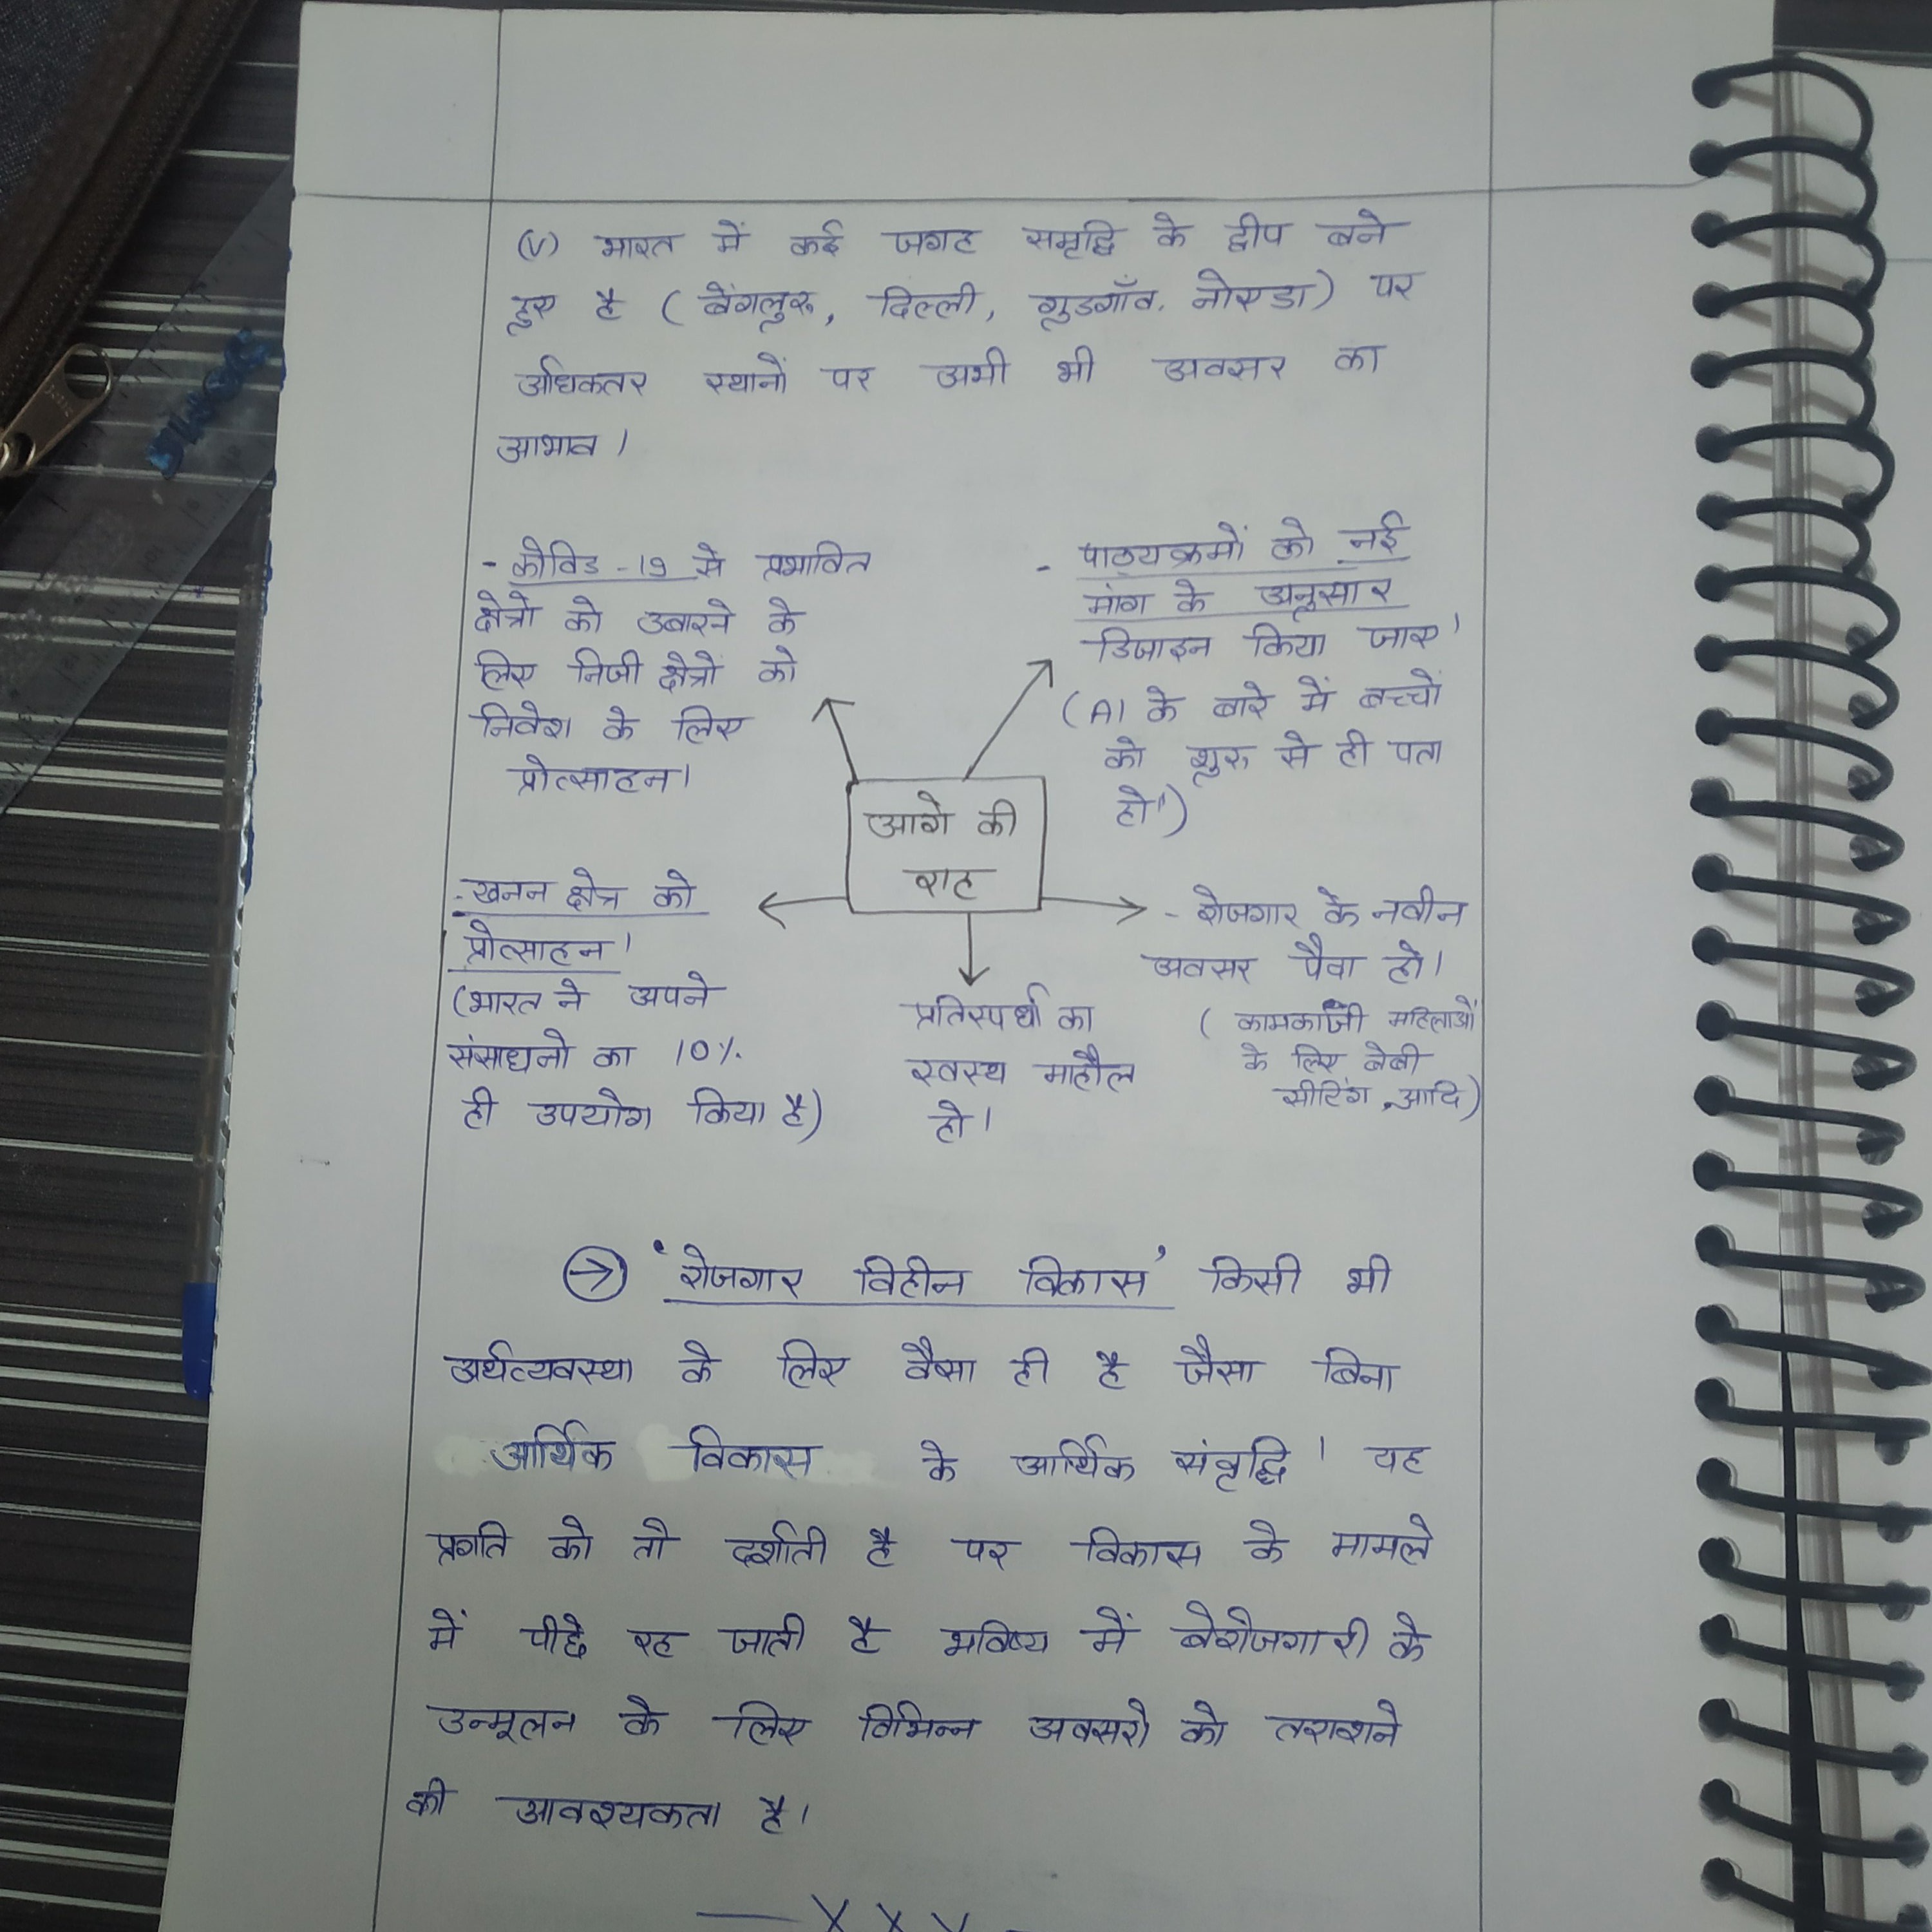 (V) भारत में कई जगह समृद्धि के द्वीप बने
हुए है ( बेंगलुरू, दिल्ली, गुडगाँव, नोएडा) पर
अधिकतर स्थानों पर अभी भी अवसर का
आभाव ।
- कोविड -19 से प्रभावित
क्षेत्रो को उबारने के
लिए निजी क्षेत्रो को
निवेश के लिए
प्रोत्साहन।
- पाठ्यक्रमों को नई
मांग के अनुसार
डिजाइन किया जाए।
(AI के बारे में बच्चों
को शुरू से ही पता
हो।)
आगे की
राह
- खनन क्षेत्र को
प्रोत्साहन।
(भारत ने अपने
संसाधनो का 10%
ही उपयोग किया है)
प्रतिस्पर्धा का
स्वस्थ माहौल
हो।
- रोजगार के नवीन
अवसर पैदा हो।
( कामकाजी महिलाओं
के लिए बेबी
सीटिंग, आदि)
→ 'रोजगार विहीन विकास' किसी भी
अर्थव्यवस्था के लिए वैसा ही है जैसा बिना
आर्थिक विकास के आर्थिक संवृद्धि। यह
प्रगति को तो दर्शाती है पर विकास के मामले
में पीछे रह जाती है भविष्य में बेरोजगारी के
उन्मूलन के लिए विभिन्न अवसरो को तराशने
की आवश्यकता है।
— X X X —